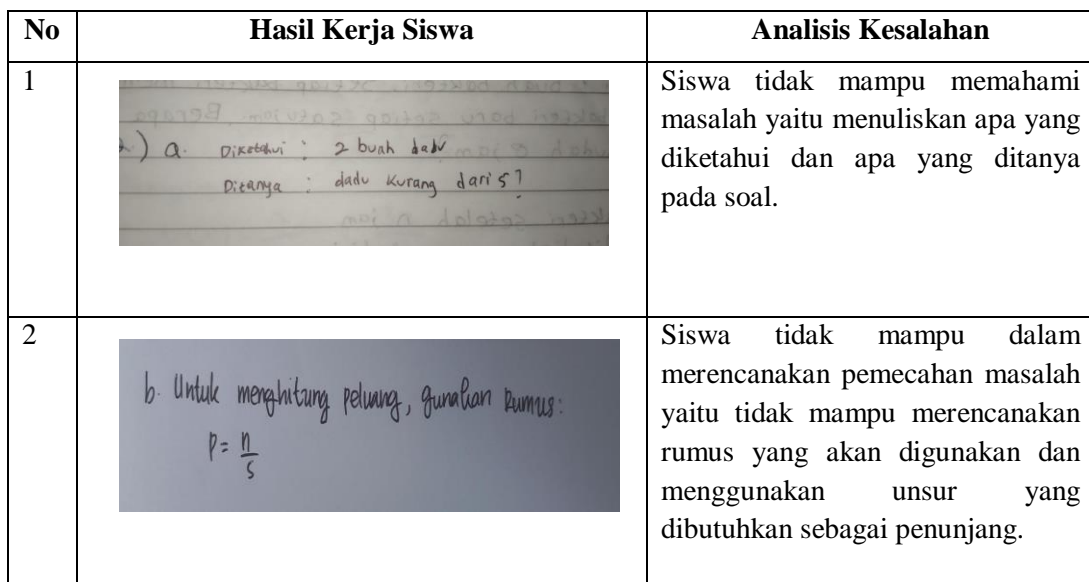 No Hasil Kerja Siswa Analisis Kesalahan
1
2.) a. Diketahui : 2 buah dadu
Ditanya : dadu kurang dari 5?
Siswa tidak mampu memahami
masalah yaitu menuliskan apa yang
diketahui dan apa yang ditanya
pada soal.
2
b. Untuk menghitung peluang, gunakan Rumus:
P = n
S
Siswa tidak mampu dalam
merencanakan pemecahan masalah
yaitu tidak mampu merencanakan
rumus yang akan digunakan dan
menggunakan unsur yang
dibutuhkan sebagai penunjang.